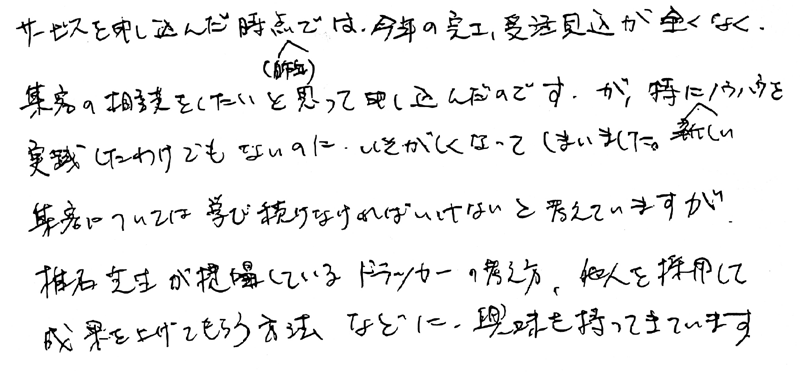 サービスを申し込んだ時点では、今年の完工、受注見込が全くなく、
(昨年)
集客の相談をしたいと思って申し込んだのです。が、特にノウハウを
実践したわけでもないのに、いそがしくなってしまいました。新しい
集客については学び続けなければいけないと考えていますが、
椎名先生が提唱しているドラッカーの考え方、他人を採用して
成果を上げてもらう方法などに、興味を持ってきています